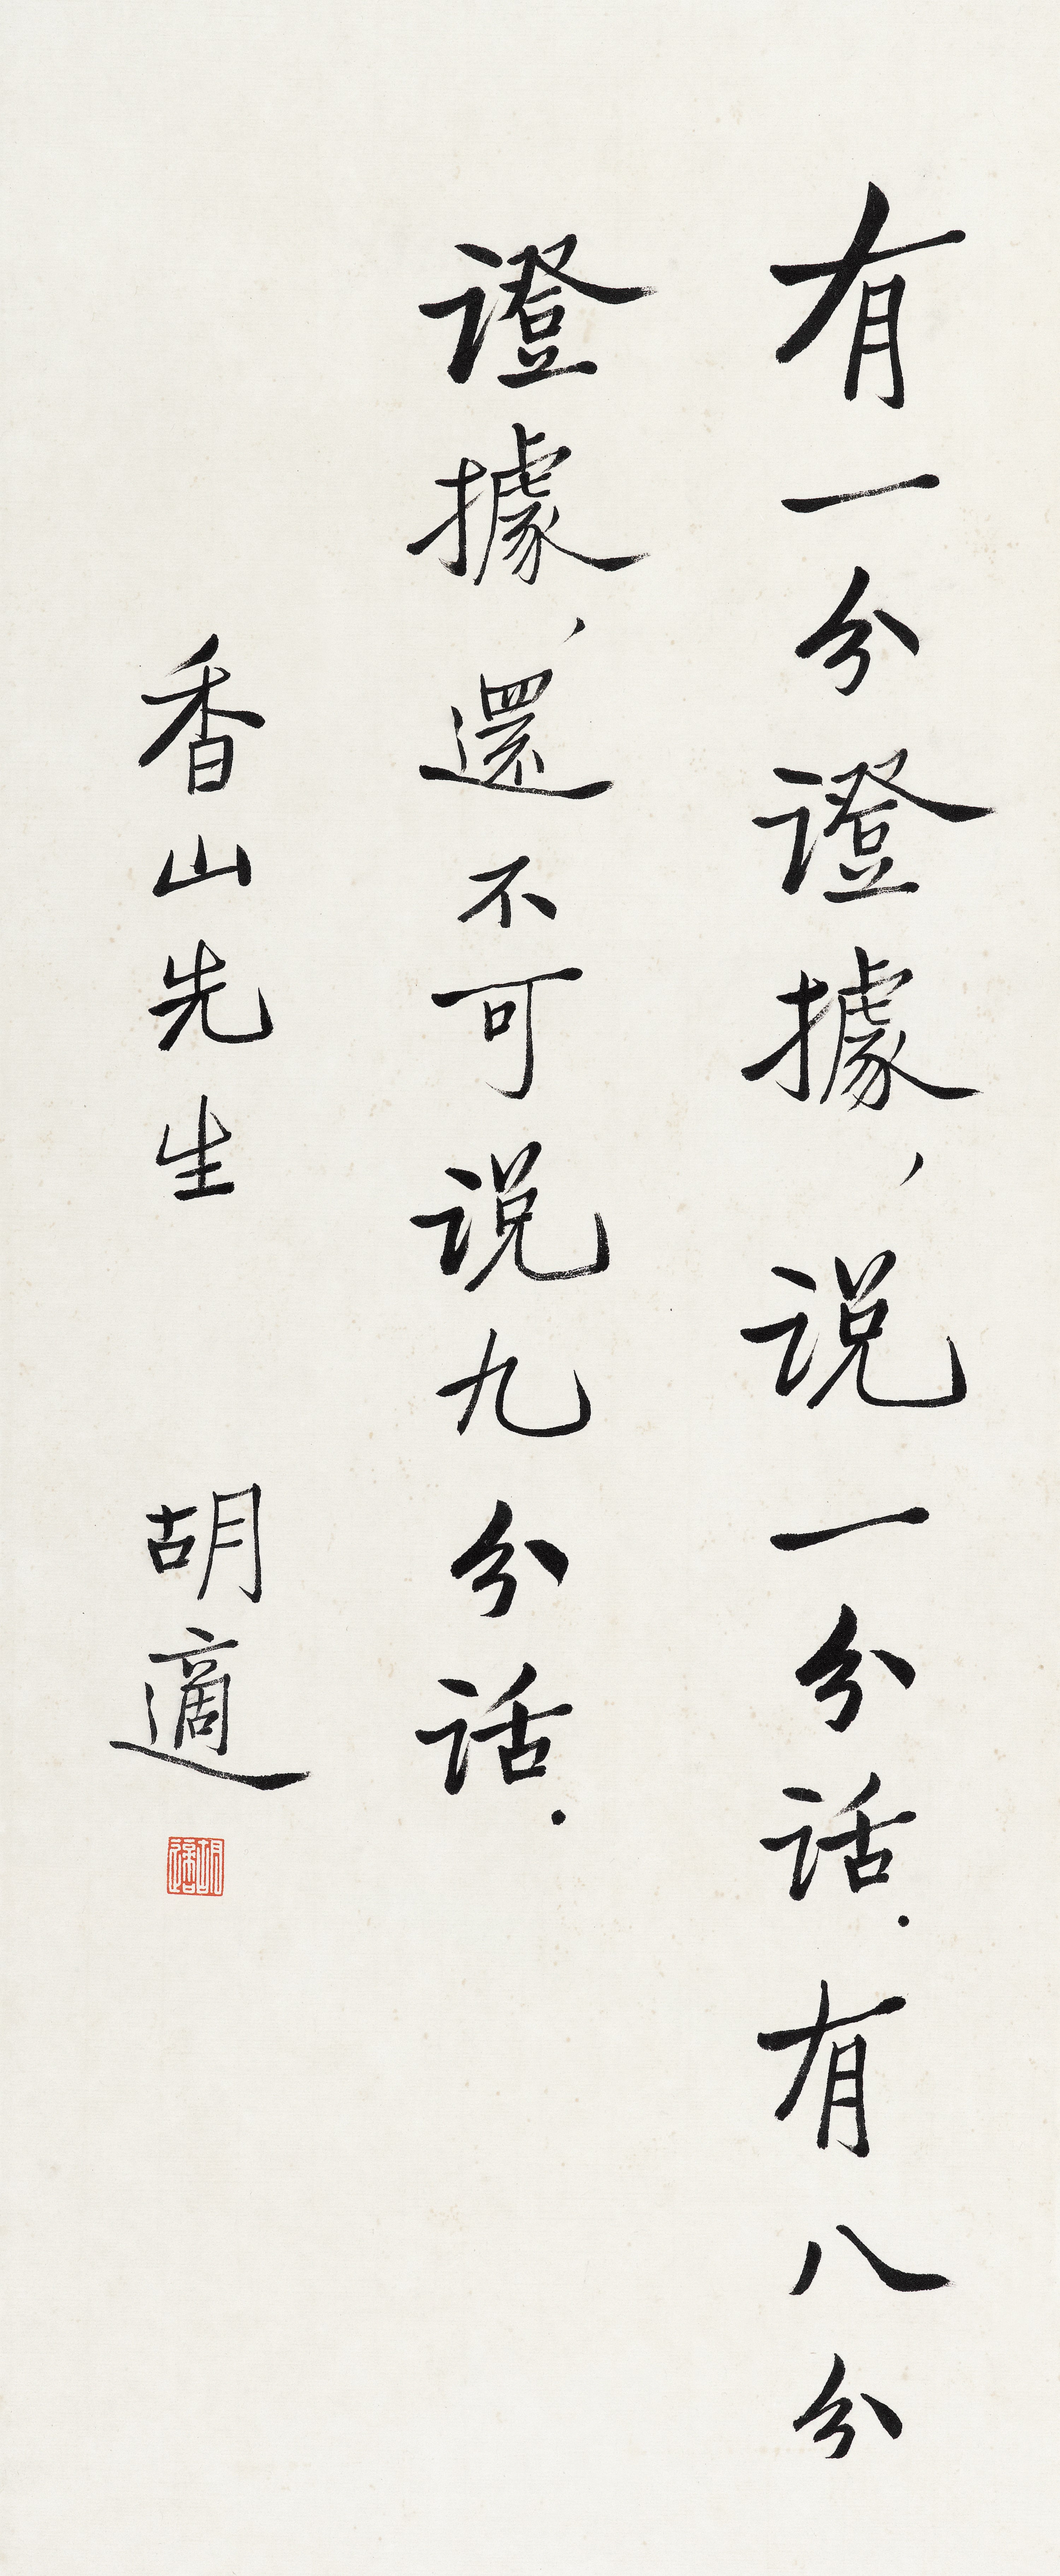 有一分證據，说一分话．有八分
證據，還不可说九分话．
香山先生 胡適
胡適